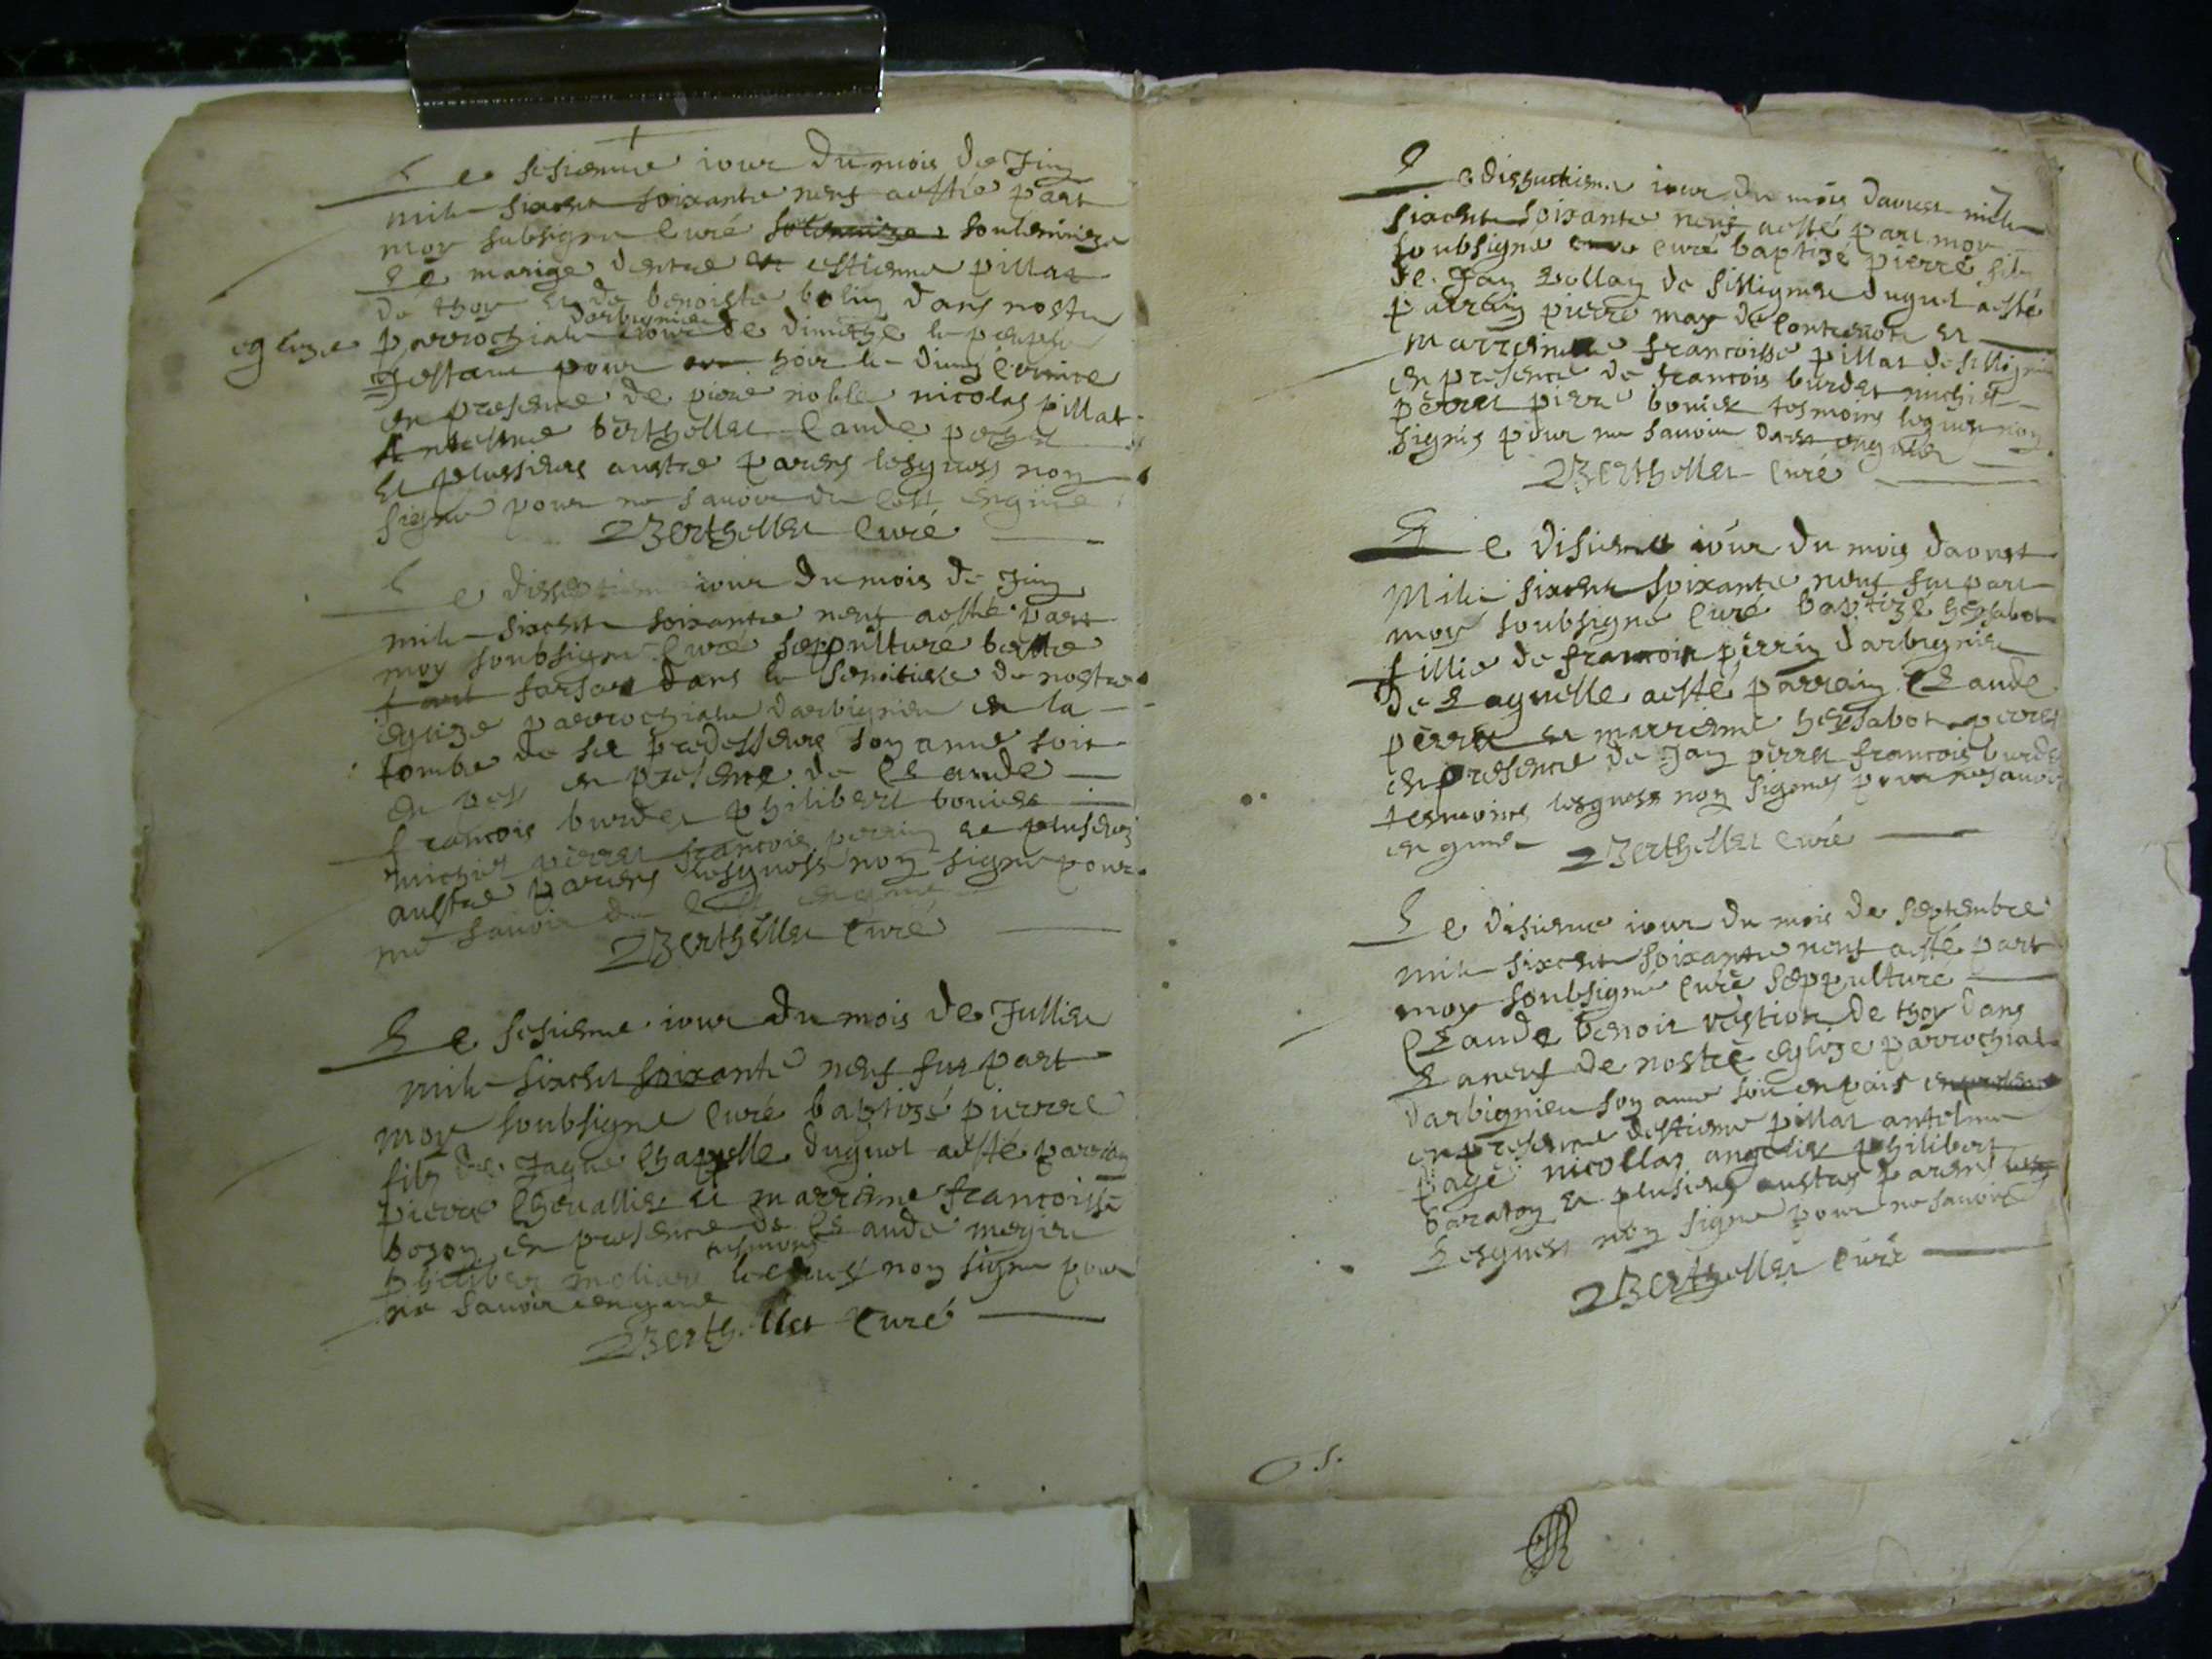 Le sesiesme iour du mois de Juin
mile sixcent soixante neuf aesté part
moy subsigne Curé solemnize soulemnize
Le mariage dentre et estienne pillat
de thoy et de benoiste bolin dans nostre
darbignieu
eglize parrochiale iour de dimiche le peuple
estant pour oir le diuin
en presence de piere noble nicolas pillat
Antelme berthollet Claude
et plussieurs austre parens lesquels non
signe pour ne sauoir de enquire
Berthollet Curé
Le disseptiem iour du mois de Juin
mile sixcent soixante neuf aesté part
moy soubsigne Curé seppulture
dans le semitiere de nostre
eglize parrochiale darbignieu en la
tombe de se predesseurs son ame soit
en pes en presence de Claude
francois burdet philibert bouier
michiel perret francois perrin et pluseurs
austre parens lesquels non signe pour
ne sauoir de enquire
Berthellet Curé
Le sesiesme iour du mois de Jullier
mile sixcent soixante neuf fut part
moy soubsigne Curé baptizé pierre
fils de Jaque Chappelle duquel aesté parrain
pierre Cheuallier et marreine francoisse
bozon en presence de Claude
tesmoins
philiber lesquels non signe pour
ne sauoir enquire
Berthellet Curé
7
Le dishuitiesme iour du mois daoust mile
sixcent soixante neuf aesté part moy
soubsigné Curé baptizé pierre fils
de Jan Rollan de sillignieu duquel aesté
parrain pierre may de Contreuos et
marreine francoisse pillat de sillignieu
en presence de francois burdet michiel
perret pierre bouier tesmoins lesquels non
signés pour ne sauoir
Berthollet Curé
Le disiesme iour du mois daoust
Mile sixcent soixante neuf fut part
moy soubsigné Curé baptizé hesabot
fillie de francois perrin darbignieu
de Laquelle aesté parrain Claude
perret et marreine hesabot perret
en presence de Jan perret francois burdet
tesmoins lesquels non signes pour ne sauoir
enquire
Berthellet Curé
Le disiesme iour du mois de septembre
mile sixcent soixante neuf aesté part
moy soubsigné Curé seppulture
Claude benoit de thoy dans
de nostre eglize parrochiale
darbignieu son ame soit en pais en presence
en presence destienne pillat antelme
page nicollas philibert
baraton et pluseurs austres parens
Lesquels non signe pour ne sauoir
Berthellet Curé